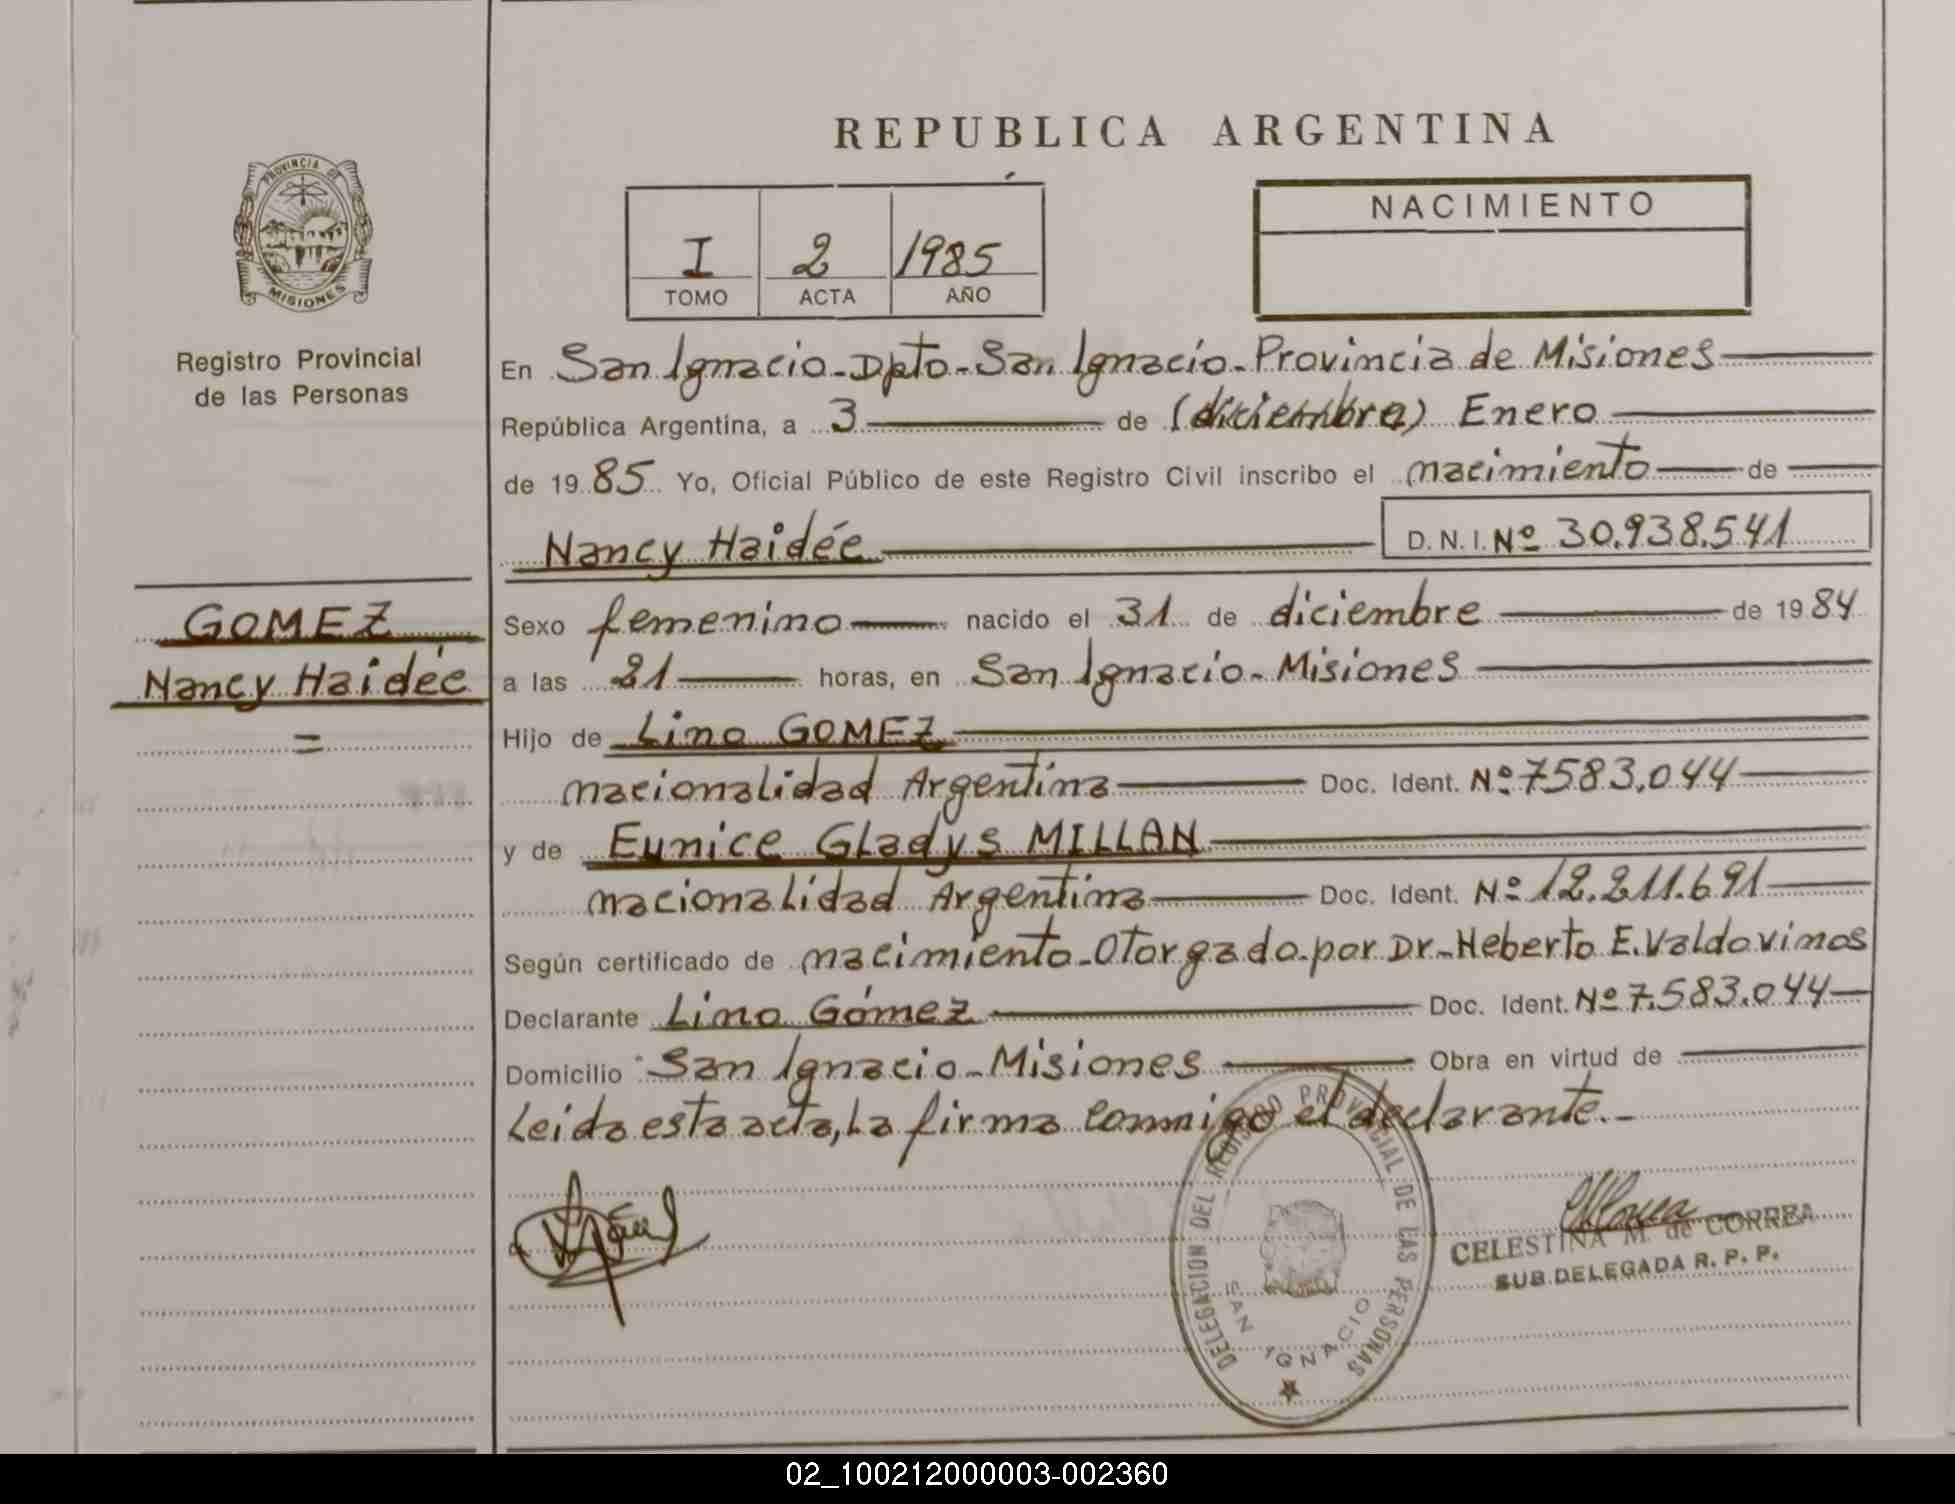 REPUBLICA ARGENTINA
PROVINCIA DE
MISIONES
Registro Provincial
de las Personas
I 2 1985
TOMO ACTA AÑO
NACIMIENTO
En San Ignacio-Dpto-San Ignacio-Provincia de Misiones
República Argentina, a 3 de (diciembre) Enero
de 1985 Yo, Oficial Público de este Registro Civil inscribo el nacimiento de
Nancy Haidée
D.N.I. Nº 30.938.541
GOMEZ
Nancy Haidée
=
Sexo femenino nacido el 31 de diciembre de 1984
a las 21 horas, en San Ignacio-Misiones
Hijo de Lino GOMEZ
nacionalidad Argentina Doc. Ident. Nº 7583.044
y de Eunice Gladys MILLAN
nacionalidad Argentina Doc. Ident. Nº 12.211.691
Según certificado de nacimiento-Otorgado por Dr-Heberto E. Valdovinos
Declarante Lino Gómez Doc. Ident. Nº 7.583.044
Domicilio San Ignacio-Misiones Obra en virtud de
Leida esta acta, La firma conmigo el declarante.-
DELEGACION DEL REGISTRO PROVINCIAL DE LAS PERSONAS
SAN IGNACIO
CELESTINA M. de CORREA
SUB DELEGADA R. P. P.
02_100212000003-002360